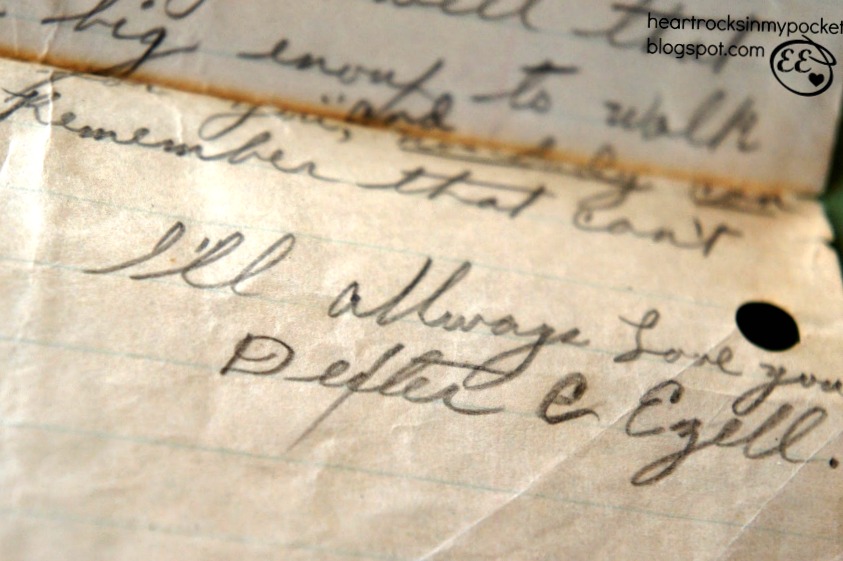 heartrocksinmypocket
blogspot.com
EE
well
big enouf to walk
you", and can
Remember that can't
I'll allways Love you
E Ezell.